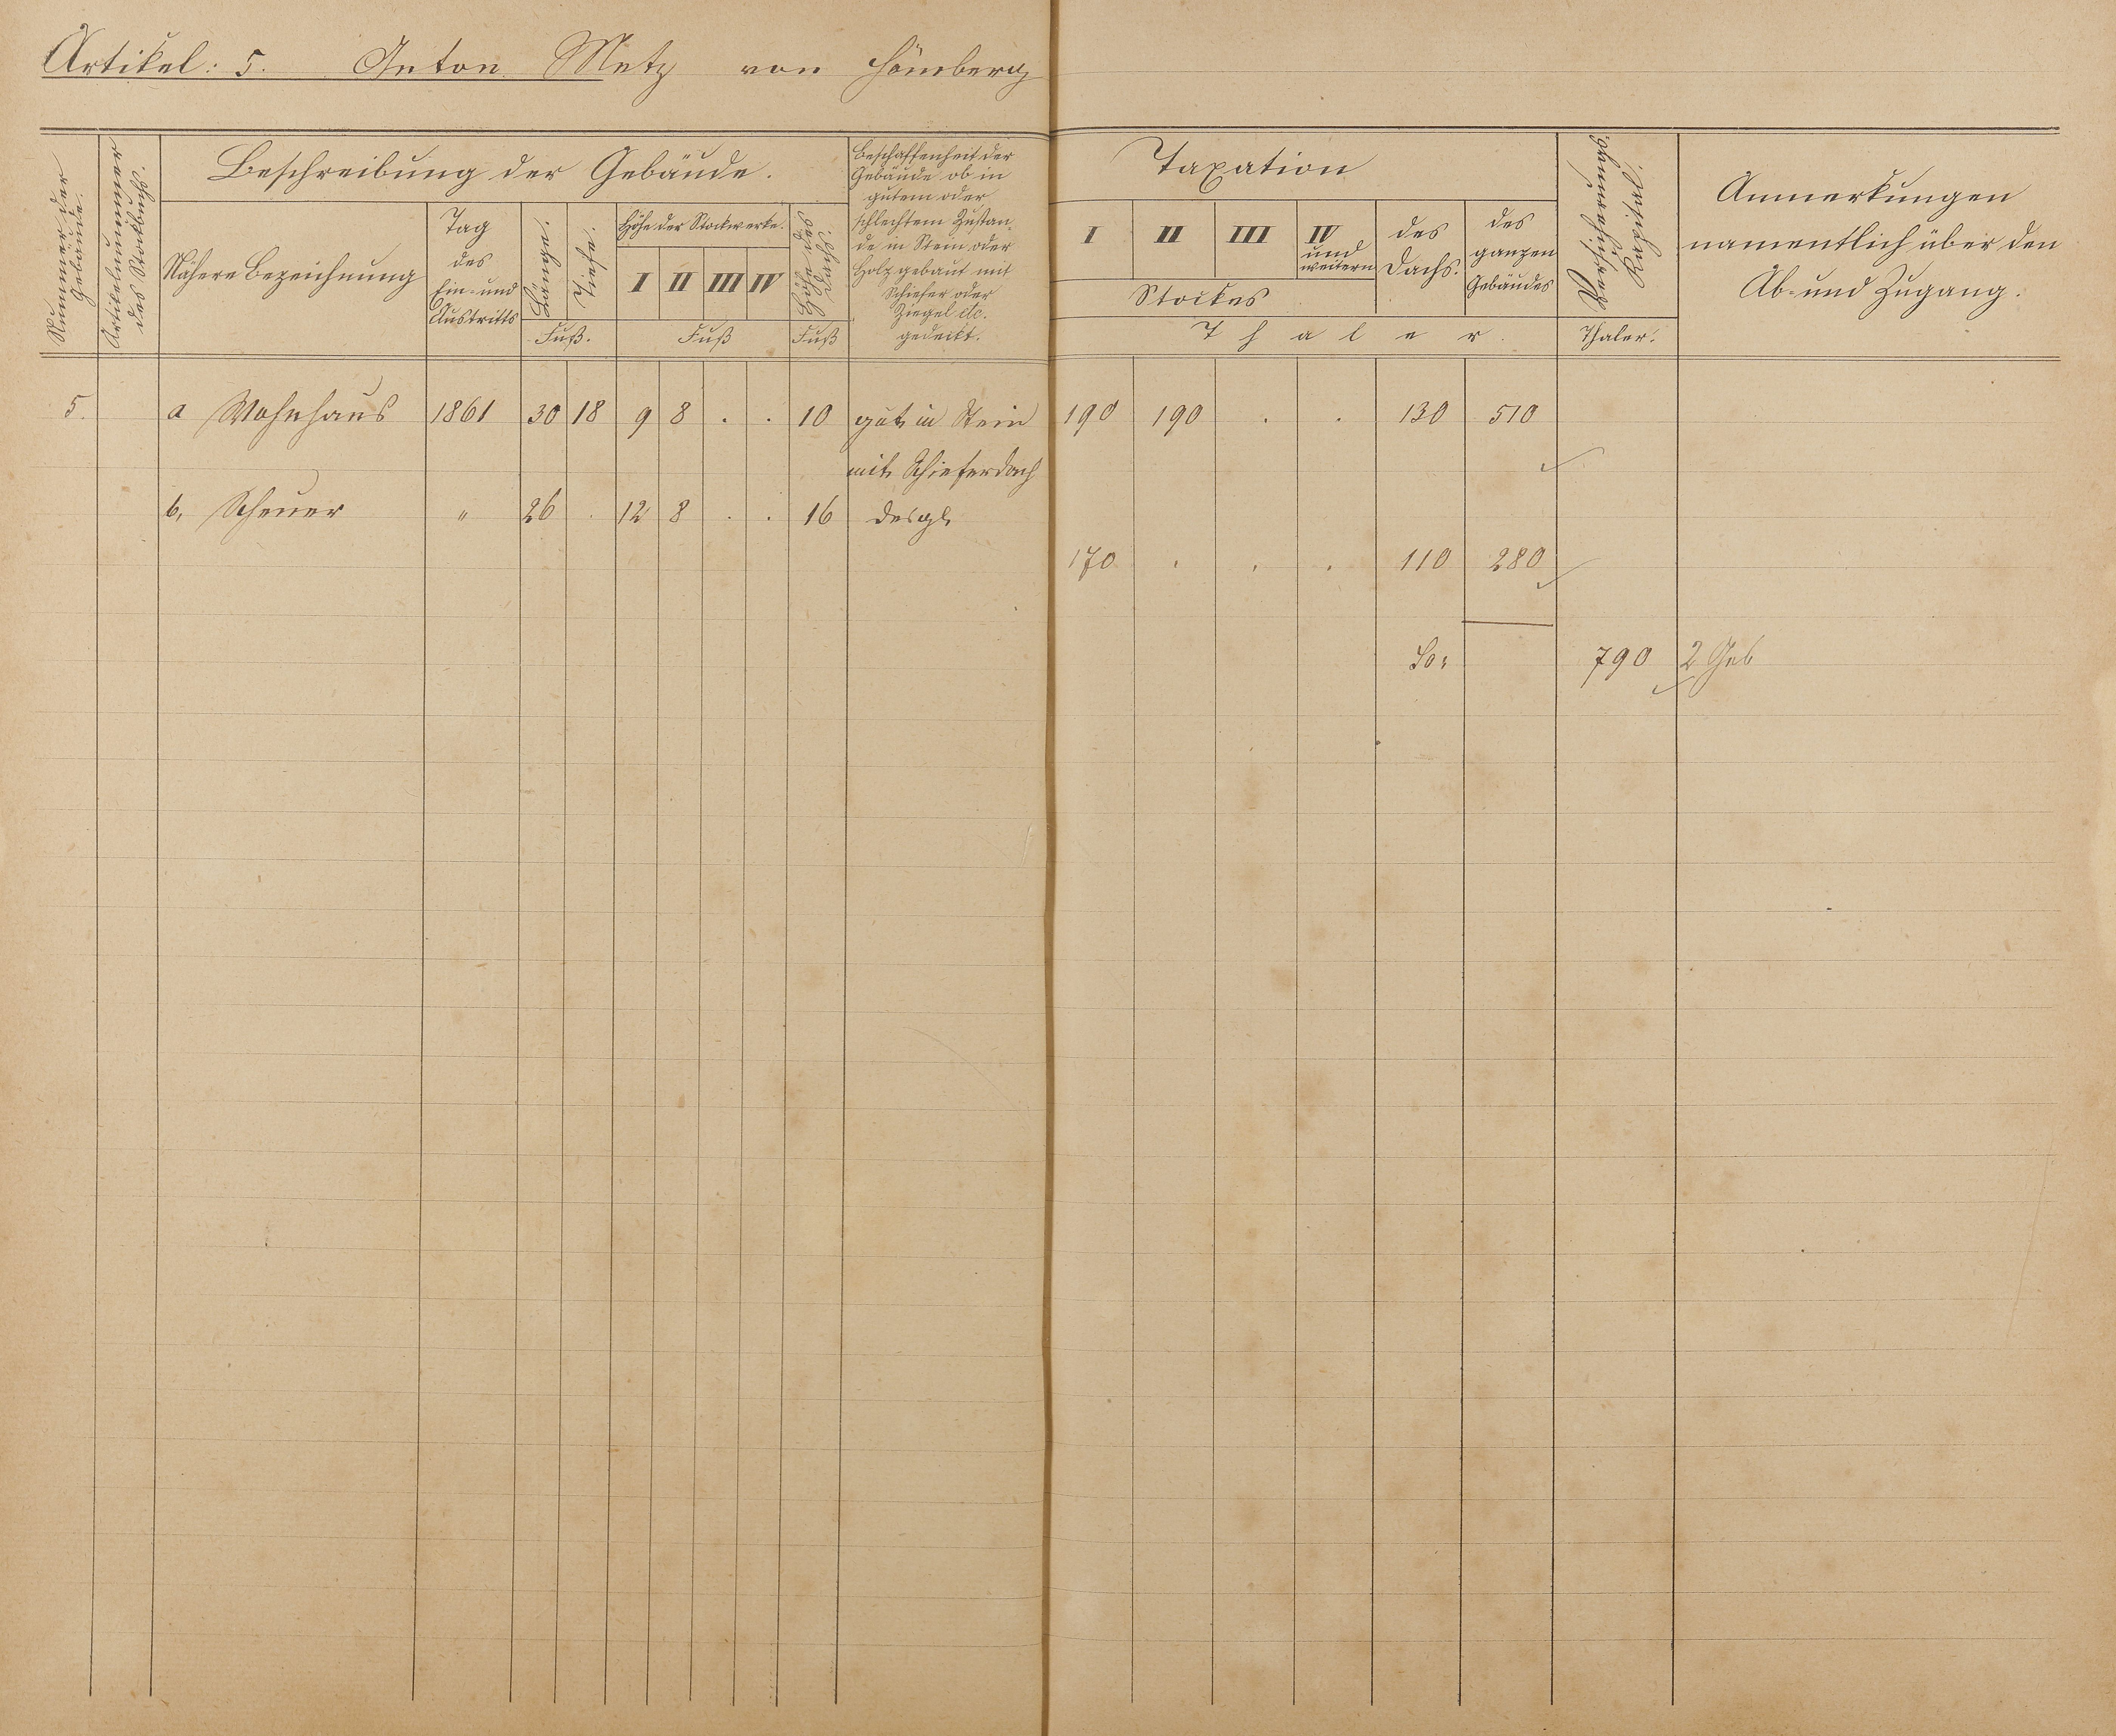 Artikel: 5. Anton Metz von Hömberg
Nummer der Gebäude.
Artikelnummer des Stockbuchs.
Beschreibung der Gebäude.
Nähere Bezeichnung
Tag des Ein- und Austritts
Länge.
Tiefe.
Fuß.
Höhe der Stockwerke.
I II III IV
Fuß
Höhe des Dachs.
Fuß
Beschaffenheit der
Gebäude ob in
gutem oder
schlechtem Zustan-
de in Stein oder
Holz gebaut mit
Schiefer oder
Ziegel etc.
gedeckt.
Taxation
I II III IV und weitern
Stockes
des Dachs.
des ganzen Gebäudes
Thaler.
Thaler.
Anmerkungen
namentlich über den
Ab- und Zugang.
5. a Wohnhaus 1861 30 18 9 8 . . 10 gut in Stein 190 190 . . 130 510
mit Schieferdach
b, Scheuer " 26 . 12 8 . . 16 desgl.
170 . . . 110 280
Sa: 790 2 Geb